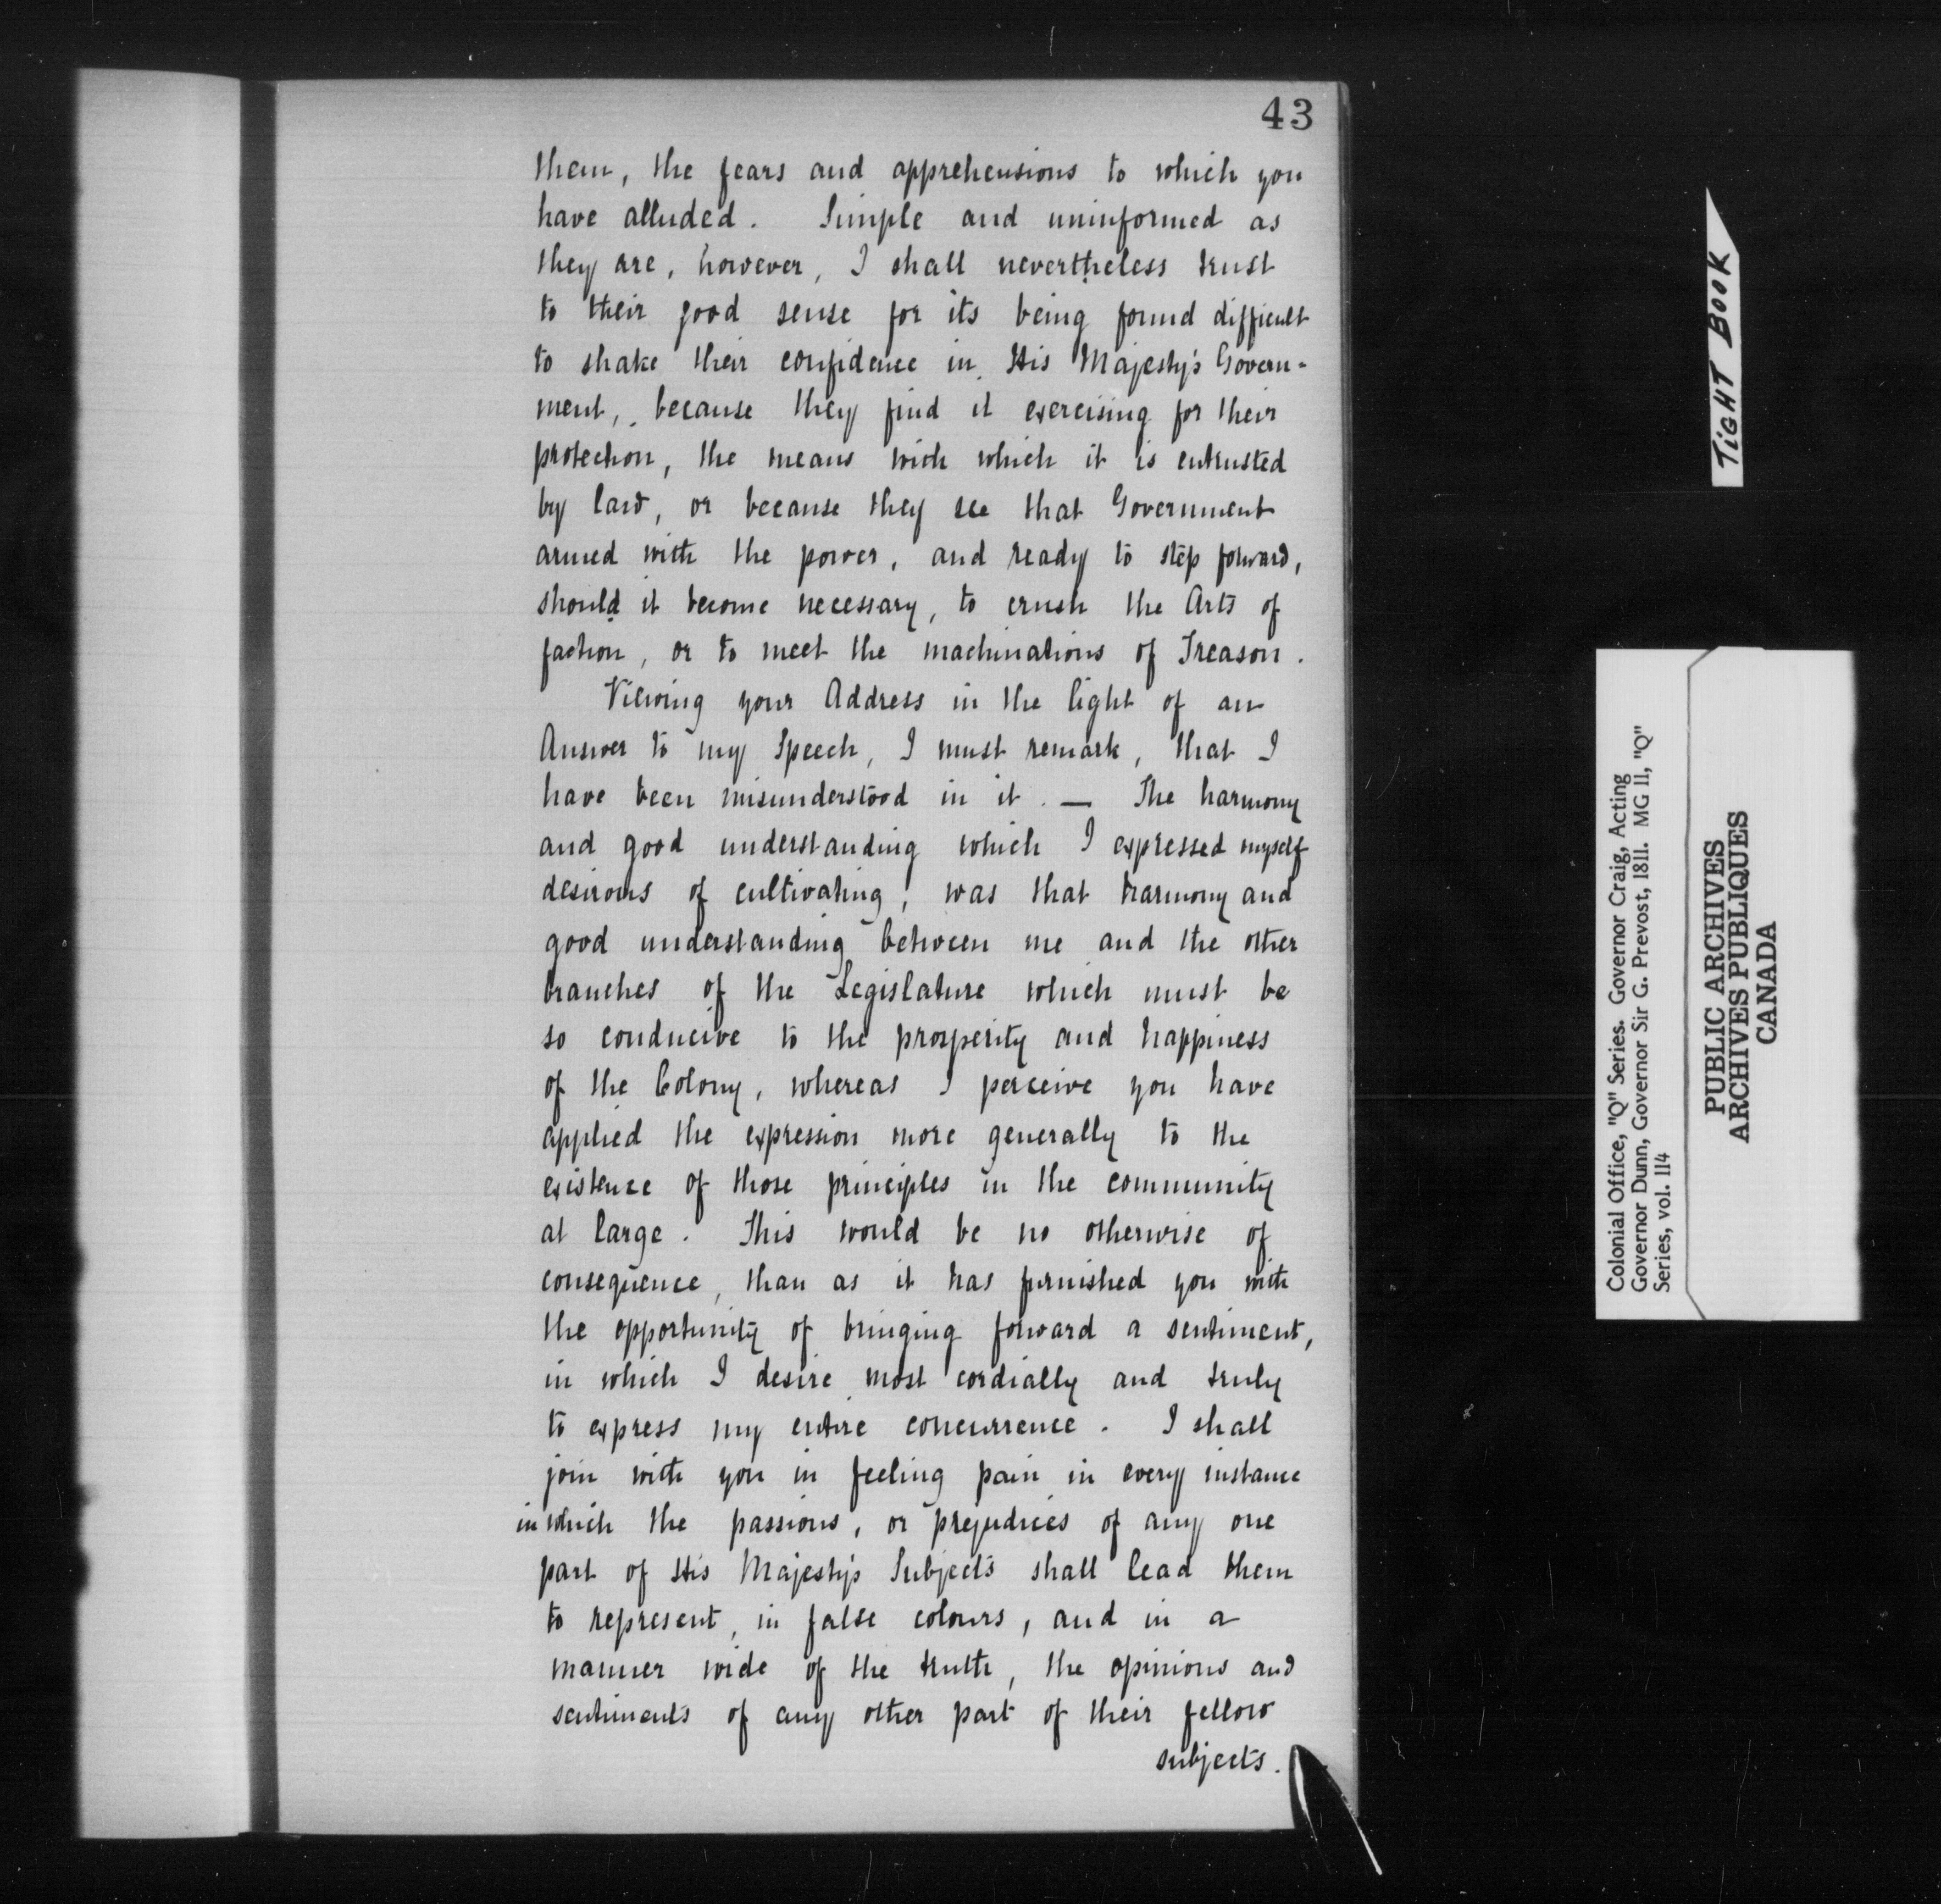 43
them, the fears and apprehensions to which you
have alluded. Simple and uninformed as
they are, however, I shall nevertheless trust
to their good sense for its being found difficult
to shake their confidence in His Majesty's Govern-
ment, because they find it exercising for their
protection, the means with which it is entrusted
by law, or because they see that Government
armed with the power, and ready to step forward,
should it become necessary, to crush the Arts of
faction, or to meet the machinations of Treason.
Viewing your Address in the light of an
Answer to my Speech, I must remark, that I
have been misunderstood in it. — The harmony
and good understanding which I expressed myself
desirous of cultivating, was that harmony and
good understanding between me and the other
branches of the Legislature which must be
so conducive to the prosperity and happiness
of the Colony, whereas I perceive you have
applied the expression more generally to the
existence of those principles in the community
at large. This would be no otherwise of
consequence, than as it has furnished you with
the opportunity of bringing forward a sentiment,
in which I desire most cordially and truly
to express my entire concurrence. I shall
join with you in feeling pain in every instance
in which the passions, or prejudices of any one
part of His Majesty's Subjects shall lead them
to represent, in false colours, and in a
manner wide of the truth, the opinions and
sentiments of any other part of their fellow
subjects.
TIGHT BOOK
Colonial Office, "Q" Series. Governor Craig, Acting
Governor Dunn, Governor Sir G. Prevost, 1811. MG 11, "Q"
Series, vol. 114
PUBLIC ARCHIVES
ARCHIVES PUBLIQUES
CANADA